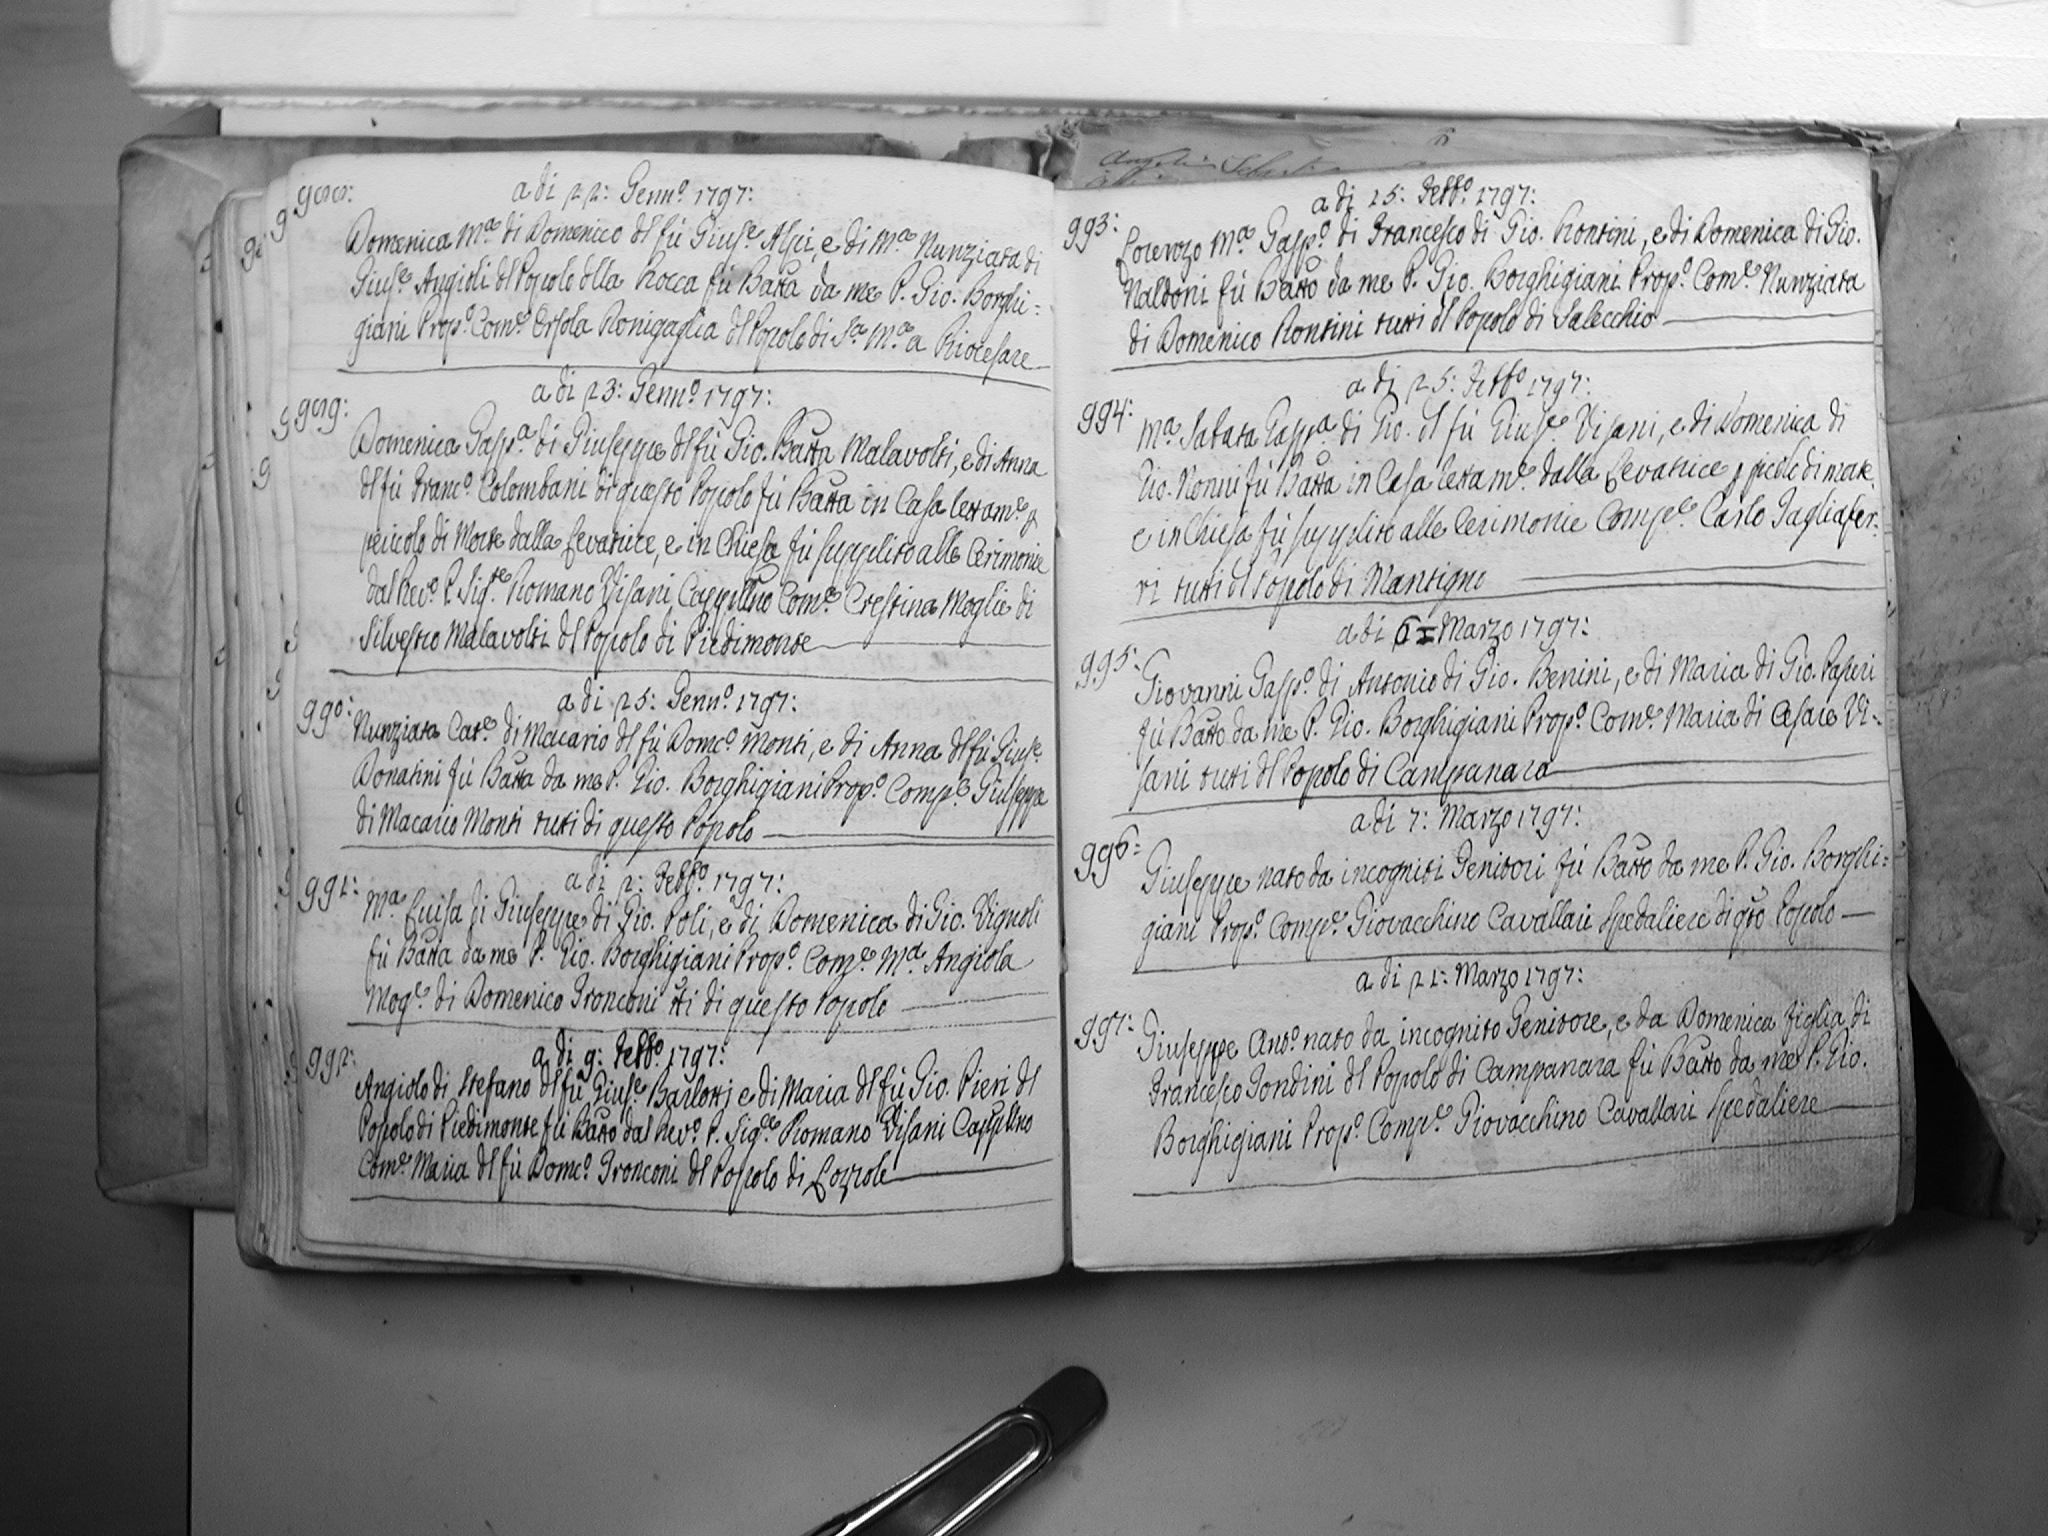 988:
a di 22: Genn.º 1797:
Domenica M.ª di Domenico dl fù Gius.e Alpi, e di M.ª Nunziata di
Gius.e Angioli dl Popolo dlla Rocca fù Batta da me P. Gio. Borghi=
giani Prop.º Com.e Orsola Ronigaglia dl Popolo di S.ª M.ª a Riocesare
989:
a di 23: Genn.º 1797:
Domenica Gasp.ª di Giuseppe dl fù Gio. Batta Malavolti, e di Anna
dl fù Franc.º Colombani di questo Popolo fù Batta in Casa lettam.e p
pericolo di Morte dalla Levatrice, e in Chiesa fù supplito alle Cerimonie
dal Rev.º P. Sig.re Romano Visani Cappllno Com.e Crestina Moglie di
Silvestro Malavolti dl Popolo di Piedimonte
990:
a di 25: Genn.º 1797:
Nunziata Cat.e di Macario dl fù Domc.º Monti, e di Anna dl fù Gius.e
Donatini fù Batta da me P. Gio. Borghigiani Prop.º Comp.e Giuseppe
di Macario Monti tutti di questo Popolo
991:
a di 2: Febb.º 1797:
M.ª Luisa di Giuseppe di Gio. Poli, e di Domenica di Gio. Vignoli
fù Batta da me P. Gio. Borghigiani Prop.º Com.e M.ª Angiola
Mog.e di Domenico Fronconi tti di questo Popolo
992:
a di 9: Febb.º 1797:
Angiolo di Stefano dl fù Gius.e Barlotti e di Maria dl fù Gio. Pieri dl
Popolo di Piedimonte fù Batto dal Rev.º P. Sig.re Romano Visani Cappllno
Com.e Maria dl fù Domc.º Fronconi dl Popolo di Lozzole
a di 25: Febb.º 1797:
993:
Lorenzo M.ª Gasp.º di Francesco di Gio. Rontini, e di Domenica di Gio.
Naldoni fù Batto da me P. Gio. Borghigiani Prop.º Com.e Nunziata
di Domenico Rontini tutti dl Popolo di Salecchio
a di 25: Febb.º 1797:
994:
M.ª Sabata Gasp.ª di Gio. dl fù Gius.e Visani, e di Domenica di
Gio. Nonni fù Batta in Casa lettam.e dalla Levatrice p picolo di morte,
e in Chiesa fù supplito alle Cerimonie Comp.e Carlo Tagliafer=
ri tutti dl Popolo di Mantigno
a di Marzo 1797:
995:
Giovanni Gasp.º di Antonio di Gio. Benini, e di Maria di Gio. Paperi
fù Batto da me P. Gio. Borghigiani Prop.º Com.e Maria di Cesare Vi=
sani tutti dl Popolo di Campanara
a di 7: Marzo 1797:
996:
Giuseppe nato da incogniti Genitori fù Batto da me P. Gio. Borghi=
giani Prop.º Comp.e Giovacchino Cavallari Spedaliere di qto Popolo
a di 21: Marzo 1797:
997:
Giuseppe Ant.º nato da incognito Genitore, e da Domenica figlia di
Francesco Tondini dl Popolo di Campanara fù Batto da me P. Gio.
Borghigiani Prop.º Comp.e Giovacchino Cavallari Spedaliere